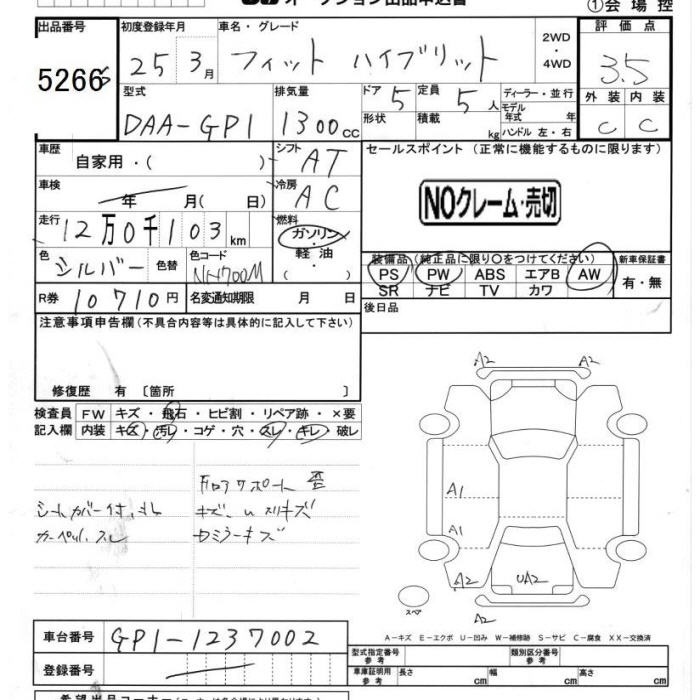 オークション出品申込書
①会場控
出品番号
初度登録年月
車名・グレード
2WD
・
4WD
評価点
5266
25 3月
フィット ハイブリット
3.5
型式
排気量
ドア
定員
ディーラー・並行
外装 内装
DAA-GP1
1300cc
5
5人
モデル
年式 年
C C
形状
積載 kg
ハンドル 左・右
車歴
自家用・( )
シフト
AT
セールスポイント(正常に機能するものに限ります)
車検
年 月( 日)
冷房
AC
NOクレーム・売切
走行
12万0千103km
燃料
ガソリン
軽油
・( )
色
シルバー
色替
色コード
NH700M
装備品(純正品に限り○をつけてください)
新車保証書
PS PW ABS エアB AW
SR ナビ TV カワ
有・無
R券
10710円
名変通知期限 月 日
後日品
注意事項申告欄(不具合内容等は具体的に記入して下さい)
修復歴 有〔箇所 〕
検査員
記入欄
FW キズ・飛石・ヒビ割・リペア跡・×要
内装 キズ・汚レ・コゲ・穴・スレ・キレ・破レ
A2 A2
A1
A1
A2 UA2 A2
A2
スペア
シートカバー付
カーペット スレ
キズ
A－キズ E－エクボ U－凹み W－補修跡 S－サビ C－腐食 XX－交換済
車台番号
GP1-1237002
登録番号
型式指定番号
参考
類別区分番号
参考
車庫証明用
参考
長さ cm
幅 cm
高さ cm
希望出品コーナー